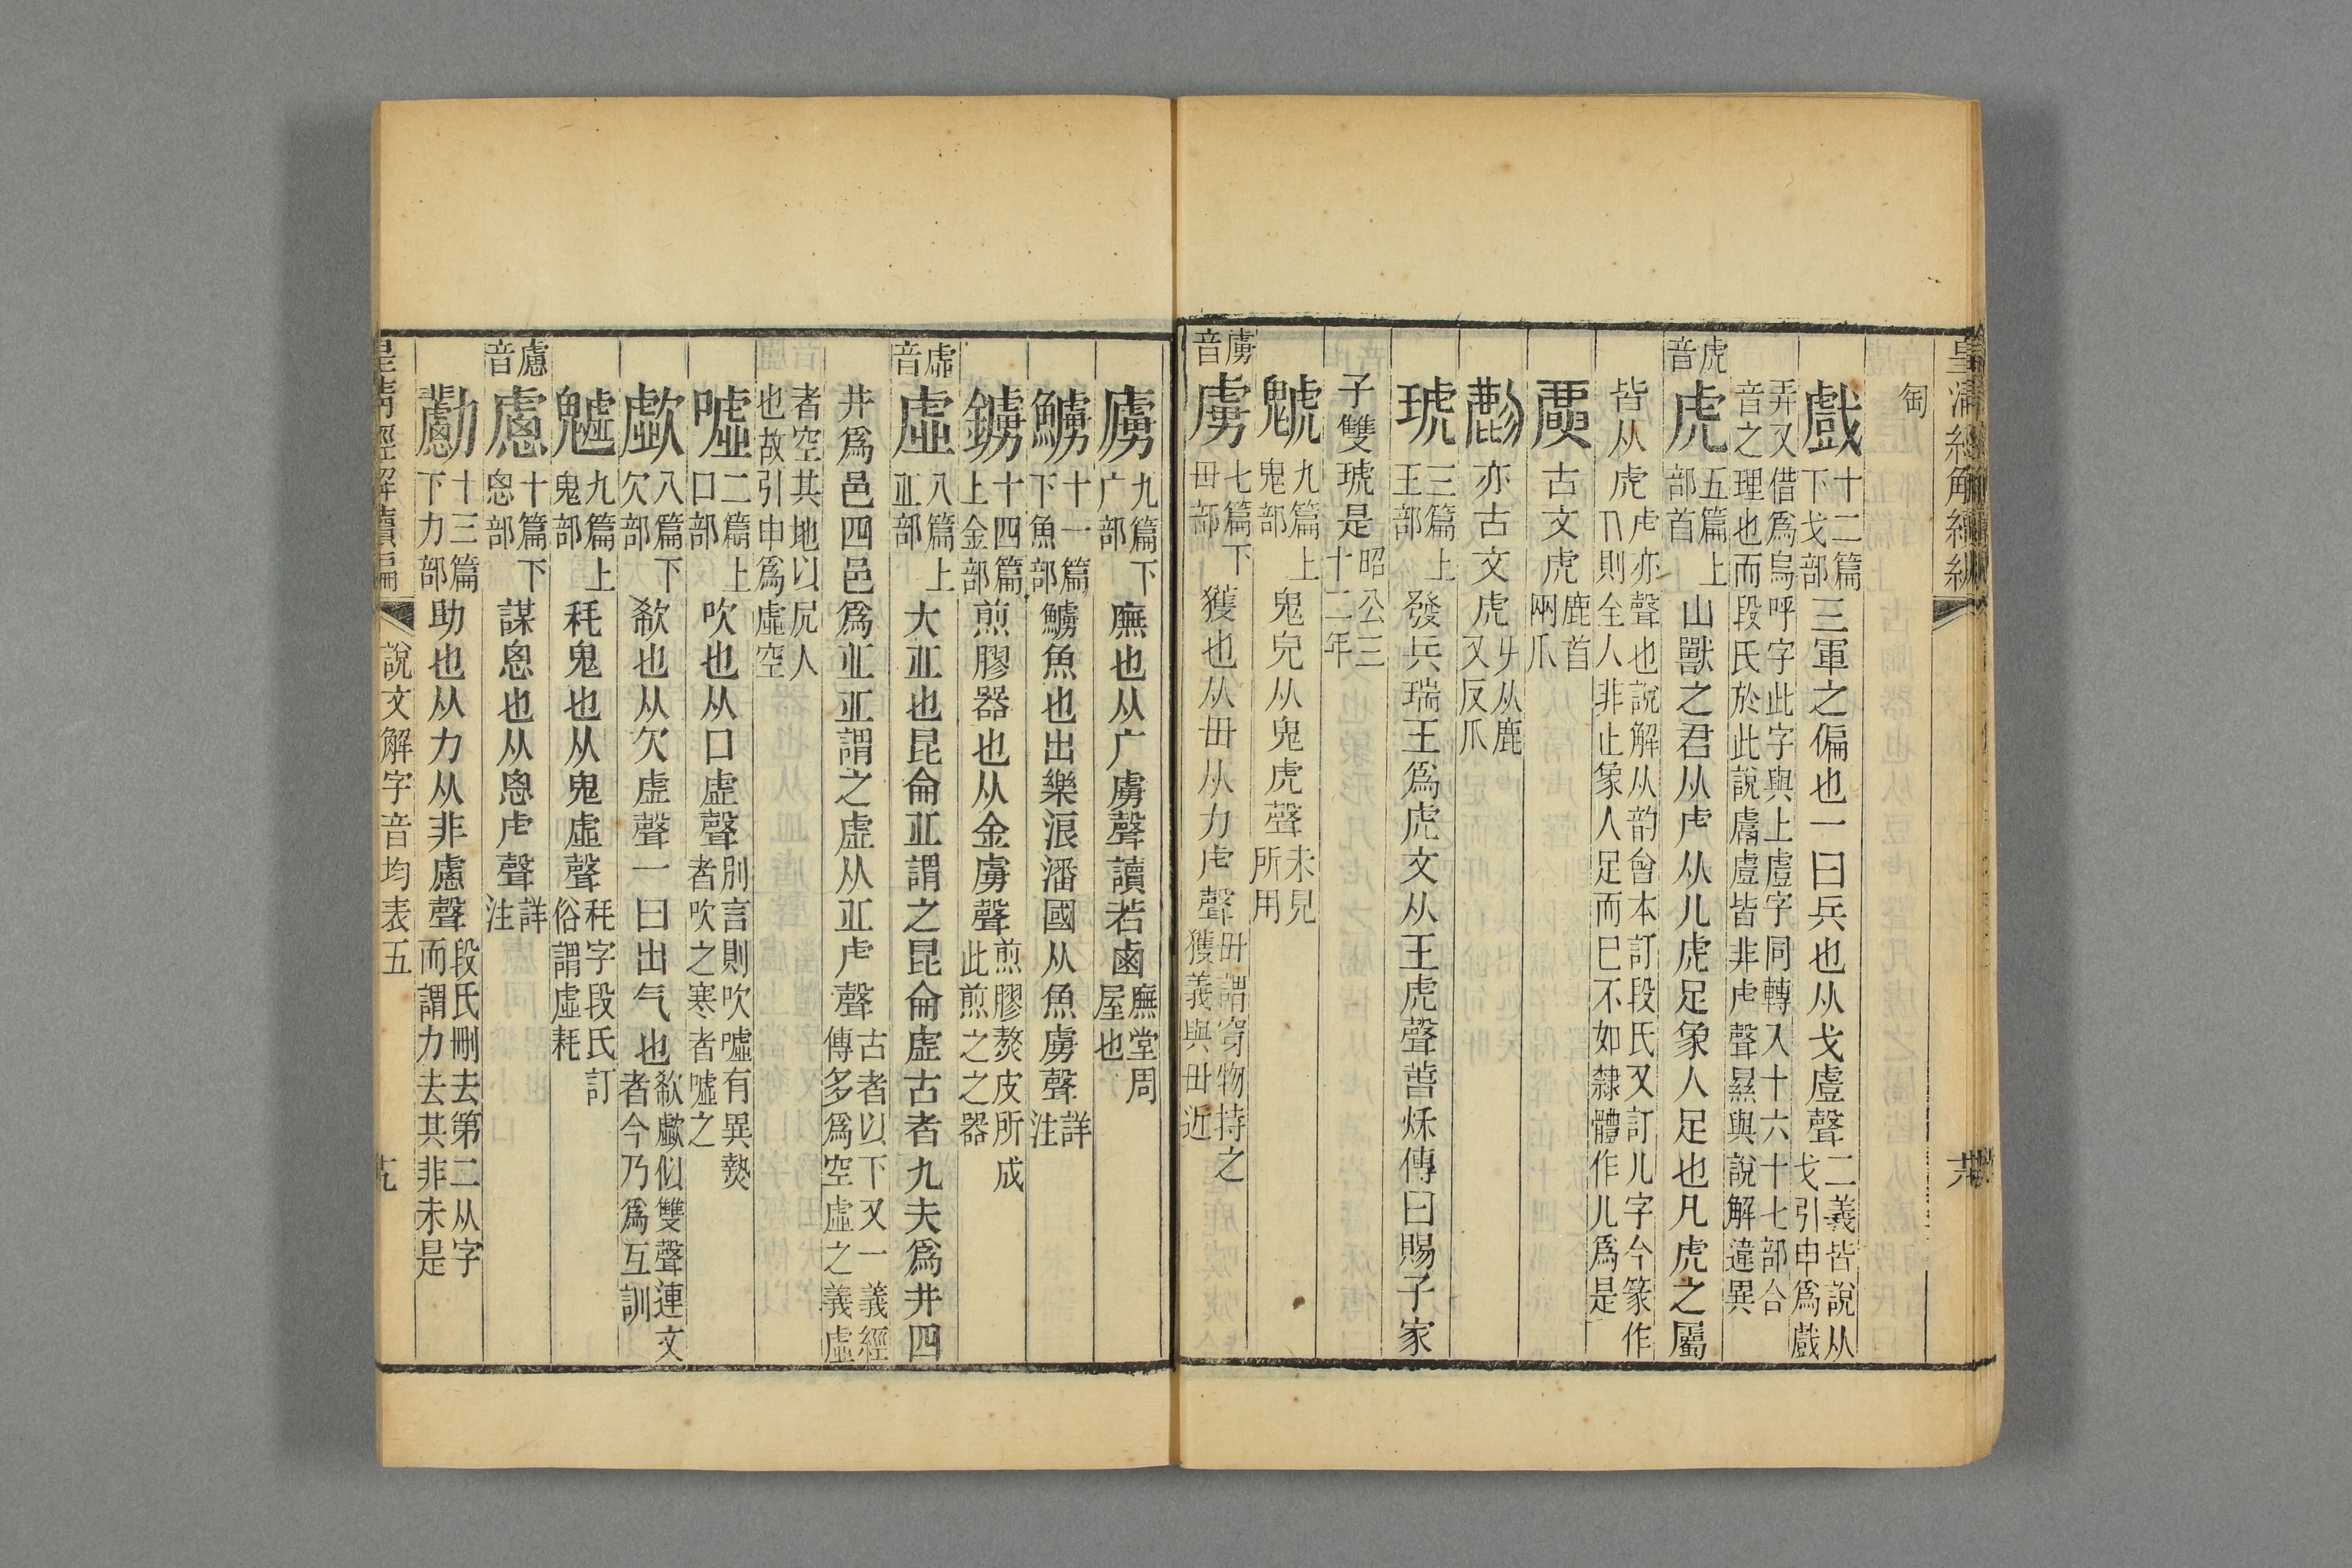 皇清經解續編
匋
戲十二篇下戈部三軍之偏也一曰兵也从戈䖒聲二義皆說从戈引申爲戲
弄又借爲烏呼字此字與上䖒字同轉入十六十七部合音之理也而段氏於此說䖒皆非虍聲㬎與說解違異
虎音虎五篇上部首山獸之君从虍从儿虎足象人足也凡虎之屬
皆从虎虍亦聲也說解从韵會本訂段氏又訂儿字今篆作𠘨則全人非止象人足而巳不如隸體作儿爲是
古文虎鹿首兩爪
亦古文虎从鹿又反爪
琥三篇上王部發兵瑞王爲虎文从王虎聲萅烁傳曰賜子家
子雙琥是昭公三十二年
䰧九篇上鬼部鬼皃从鬼虎聲未見所用
虜音虜七篇下毌部獲也从毌从力虍聲毌謂穿物持之獲義與毌近
廘九篇下广部廡也从广虜聲讀若鹵廡堂周屋也
鱸十一篇下魚部鱸魚也出樂浪潘國从魚虜聲詳注
鐪十四篇上金部煎膠器也从金虜聲煎膠漀皮所成此煎之之器
虛音虛八篇上丠部大丠也昆侖丠謂之昆侖虛古者九夫爲井四
井爲邑四邑爲丠丠謂之虛从丠虍聲古者以下又一義經傳多爲空虛之義虛
者空其地以凥人也故引申爲虛空
噓二篇上口部吹也从口虛聲別言則吹噓有異𤍽者吹之寒者噓之
歔八篇下欠部欷也从欠虛聲一曰出气也欷歔似雙聲連文者今乃爲互訓
魖九篇上鬼部秏鬼也从鬼虛聲秏字段氏訂俗謂虛耗
慮音慮十篇下思部謀思也从思虍聲詳注
勴十三篇下力部助也从力从非慮聲段氏刪去第二从字而謂力去其非未是
說文解字音均表五